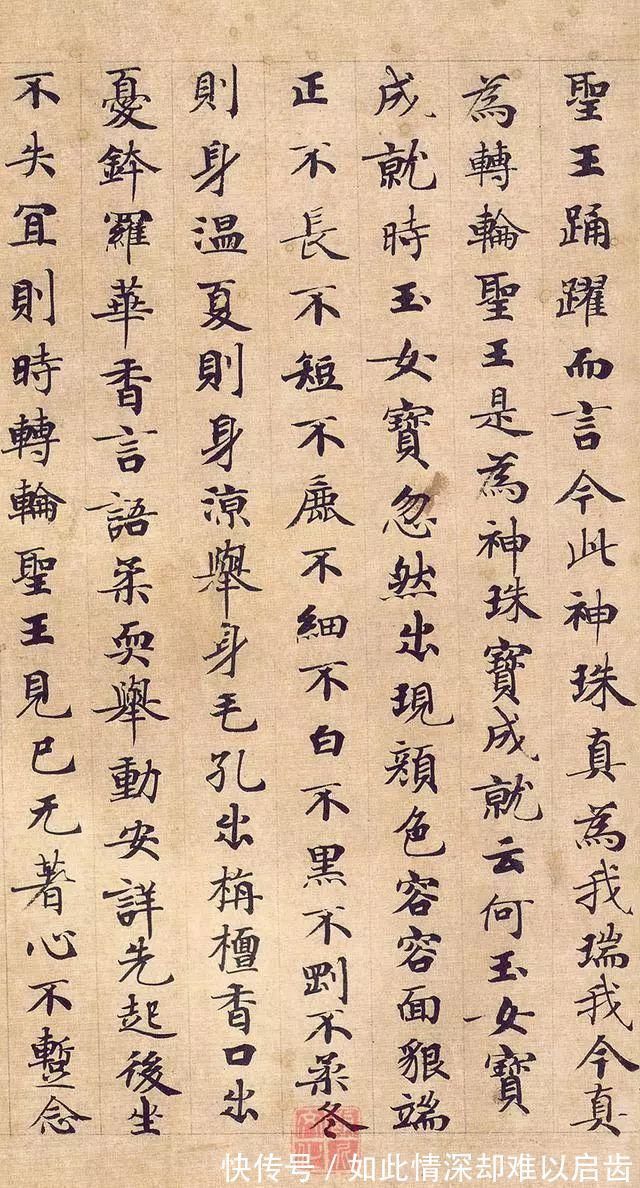 聖王踊躍而言今此神珠真為我瑞我今真
為轉輪聖王是為神珠寶成就云何玉女寶
成就時玉女寶忽然出現顏色容容面貌端
正不長不短不麁不細不白不黒不剛不柔冬
則身温夏則身涼舉身毛孔出栴檀香口出
憂鉢羅華香言語柔耎舉動安詳先起後坐
不失冝則時轉輪聖王見已无著心不蹔念
快传号 / 如此情深却难以启齿